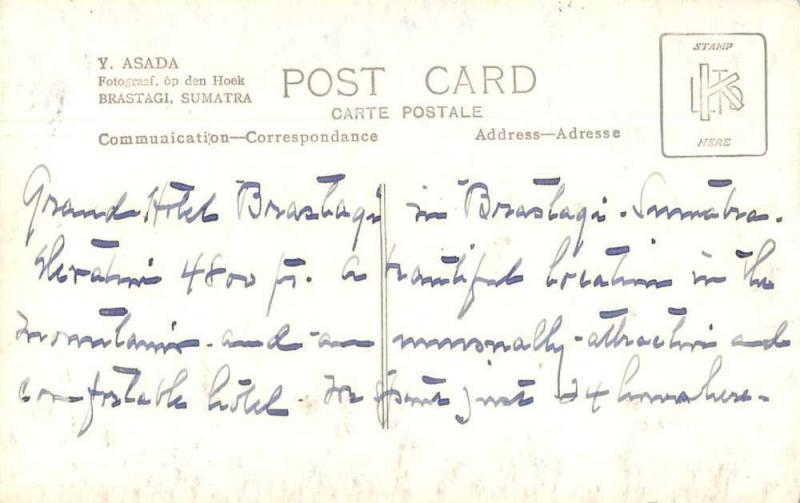 Y. ASADA
Fotograaf, op den Hoek
BRASTAGI, SUMATRA
POST CARD
CARTE POSTALE
Communication—Correspondance
Address—Adresse
STAMP
HERE
Grand Hotel Brastagi in Brastagi - Sumatra -
Elevation 4800 ft. A beautiful location in the
mountains - and - an unusually - attractive and
comfortable hôtel - We spent just 24 hours here -